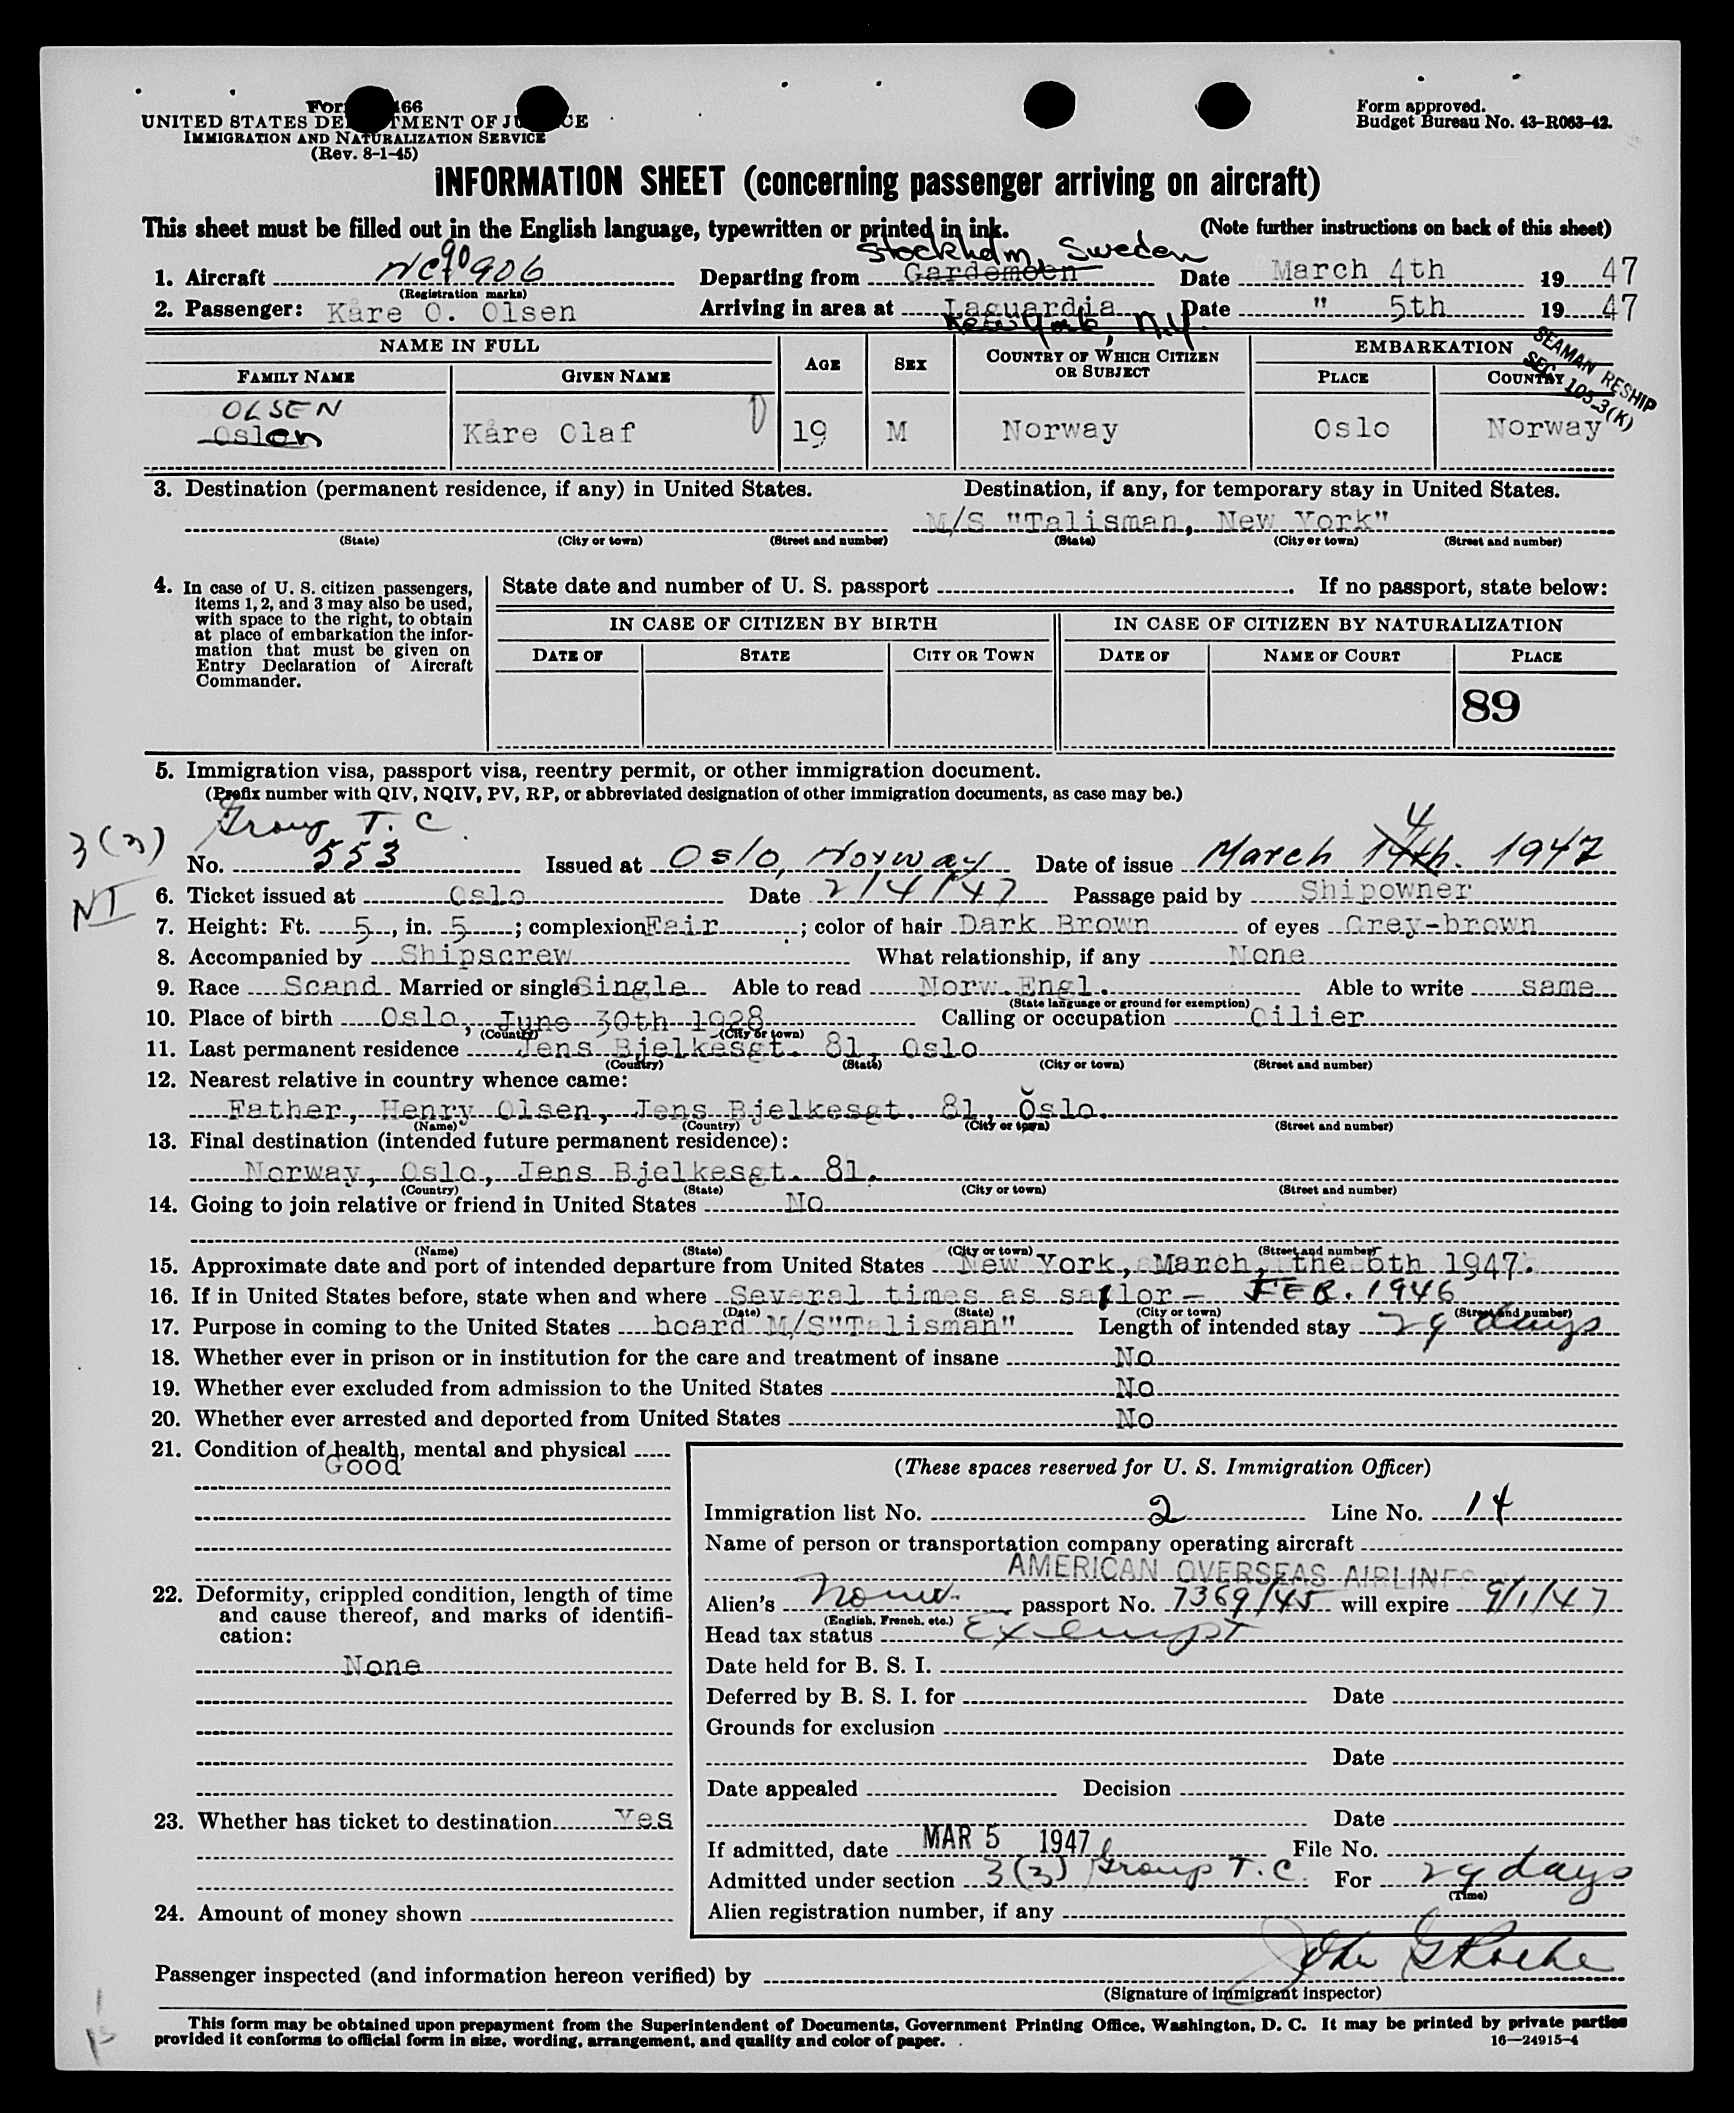 Form 466
UNITED STATES DEPARTMENT OF JUSTICE
IMMIGRATION AND NATURALIZATION SERVICE
(Rev. 8-1-45)
Form approved.
Budget Bureau No. 43-R063-42.
INFORMATION SHEET (concerning passenger arriving on aircraft)
This sheet must be filled out in the English language, typewritten or printed in ink. (Note further instructions on back of this sheet)
Stockholm, Sweden
1. Aircraft NC90906 Departing from Gardemoen Date March 4th 1947
(Registration marks)
2. Passenger: Kåre O. Olsen Arriving in area at Laguardia Date " 5th 1947
New York, N.Y.
SEAMAN RESHIP
SEC. 105-3(K)
NAME IN FULL AGE SEX COUNTRY OF WHICH CITIZEN OR SUBJECT EMBARKATION
FAMILY NAME GIVEN NAME PLACE COUNTRY
OLSEN
Oslen Kåre Olaf 19 M Norway Oslo Norway
3. Destination (permanent residence, if any) in United States. Destination, if any, for temporary stay in United States.
M/S "Talisman, New York"
(State) (City or town) (Street and number) (State) (City or town) (Street and number)
4. In case of U. S. citizen passengers, items 1, 2, and 3 may also be used, with space to the right, to obtain at place of embarkation the information that must be given on Entry Declaration of Aircraft Commander.
State date and number of U. S. passport . If no passport, state below:
IN CASE OF CITIZEN BY BIRTH IN CASE OF CITIZEN BY NATURALIZATION
DATE OF STATE CITY OR TOWN DATE OF NAME OF COURT PLACE
89
5. Immigration visa, passport visa, reentry permit, or other immigration document.
(Prefix number with QIV, NQIV, PV, RP, or abbreviated designation of other immigration documents, as case may be.)
Group T. C.
3(3)
NI
No. 553 Issued at Oslo, Norway Date of issue March 14th. 4 1947
6. Ticket issued at Oslo Date 2/4/47 Passage paid by Shipowner
7. Height: Ft. 5, in. 5; complexion Fair; color of hair Dark Brown of eyes Grey-brown
8. Accompanied by Shipscrew What relationship, if any None
9. Race Scand Married or single Single Able to read Norw. Engl. Able to write same
(State language or ground for exemption)
10. Place of birth Oslo, June 30th 1928 Calling or occupation Oilier
(Country) (City or town)
11. Last permanent residence Jens Bjelkesgt. 81, Oslo
(Country) (State) (City or town) (Street and number)
12. Nearest relative in country whence came:
Father, Henry Olsen, Jens Bjelkesgt. 81, Oslo.
(Name) (Country) (City or town) (Street and number)
13. Final destination (intended future permanent residence):
Norway, Oslo, Jens Bjelkesgt. 81.
(Country) (State) (City or town) (Street and number)
14. Going to join relative or friend in United States No
(Name) (State) (City or town) (Street and number)
15. Approximate date and port of intended departure from United States New York, March, the 6th 1947.
16. If in United States before, state when and where Several times as sailor - FEB. 1946
(Date) (State) (City or town) (Street and number)
17. Purpose in coming to the United States board M/S"Talisman" Length of intended stay 29 days
18. Whether ever in prison or in institution for the care and treatment of insane No
19. Whether ever excluded from admission to the United States No
20. Whether ever arrested and deported from United States No
21. Condition of health, mental and physical
Good
22. Deformity, crippled condition, length of time and cause thereof, and marks of identification:
None
23. Whether has ticket to destination Yes
24. Amount of money shown
(These spaces reserved for U. S. Immigration Officer)
Immigration list No. 2 Line No. 14
Name of person or transportation company operating aircraft
AMERICAN OVERSEAS AIRLINES
Alien's Norw. passport No. 7369/45 will expire 9/1/47
(English, French, etc.)
Head tax status Exempt
Date held for B. S. I.
Deferred by B. S. I. for Date
Grounds for exclusion
Date
Date appealed Decision
Date
If admitted, date MAR 5 1947 File No.
Admitted under section 3(3) Group T. C. For 29 days
(Time)
Alien registration number, if any
Passenger inspected (and information hereon verified) by John G Roche
(Signature of immigrant inspector)
This form may be obtained upon prepayment from the Superintendent of Documents, Government Printing Office, Washington, D. C. It may be printed by private parties
provided it conforms to official form in size, wording, arrangement, and quality and color of paper.
16—24915-4